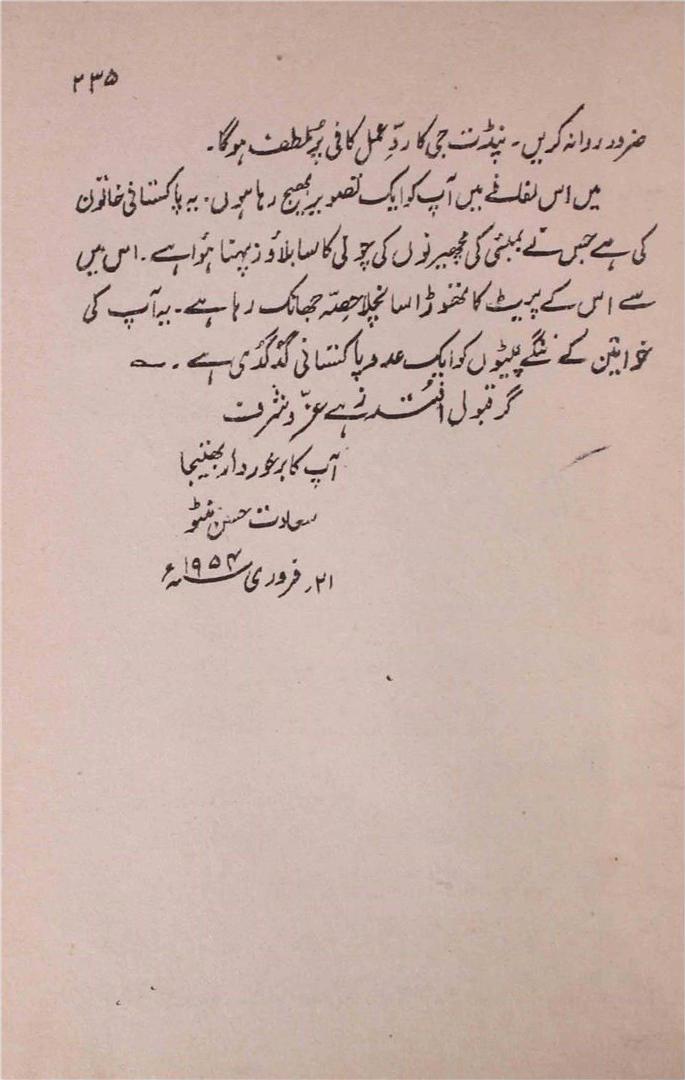 ۲۳۵
ضرور روانہ کریں۔ پنڈت جی کا ردِّ عمل کافی پُرلطف ہوگا۔
میں اس لفافے میں آپ کو ایک تصویر بھیج رہا ہوں۔ یہ پاکستانی خاتون
کی ہے جس نے بمبئی کی مچھیرنوں کی چولی کا سا بلاؤز پہنا ہوا ہے۔ اس میں
سے اس کے پیٹ کا تھوڑا سا نچلا حصّہ جھانک رہا ہے۔ یہ آپ کی
خواتین کے ننگے پیٹوں کو ایک عدد پاکستانی گدگدی ہے۔ ؎
گر قبول افتد زہے عزّ و شرف
آپ کا برخوردار بھتیجا
سعادت حسن منٹو
۲۱؍ فروری ۱۹۵۴ء